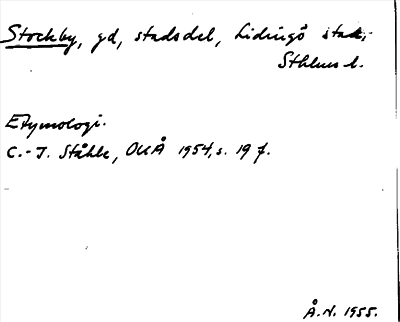 Stockby, gd, stadsdel, Lidingö stad,
Sthlms l.
Etymologi.
C.-I. Ståhle, OUÅ 1954, s. 19 f.
Å.N. 1955.